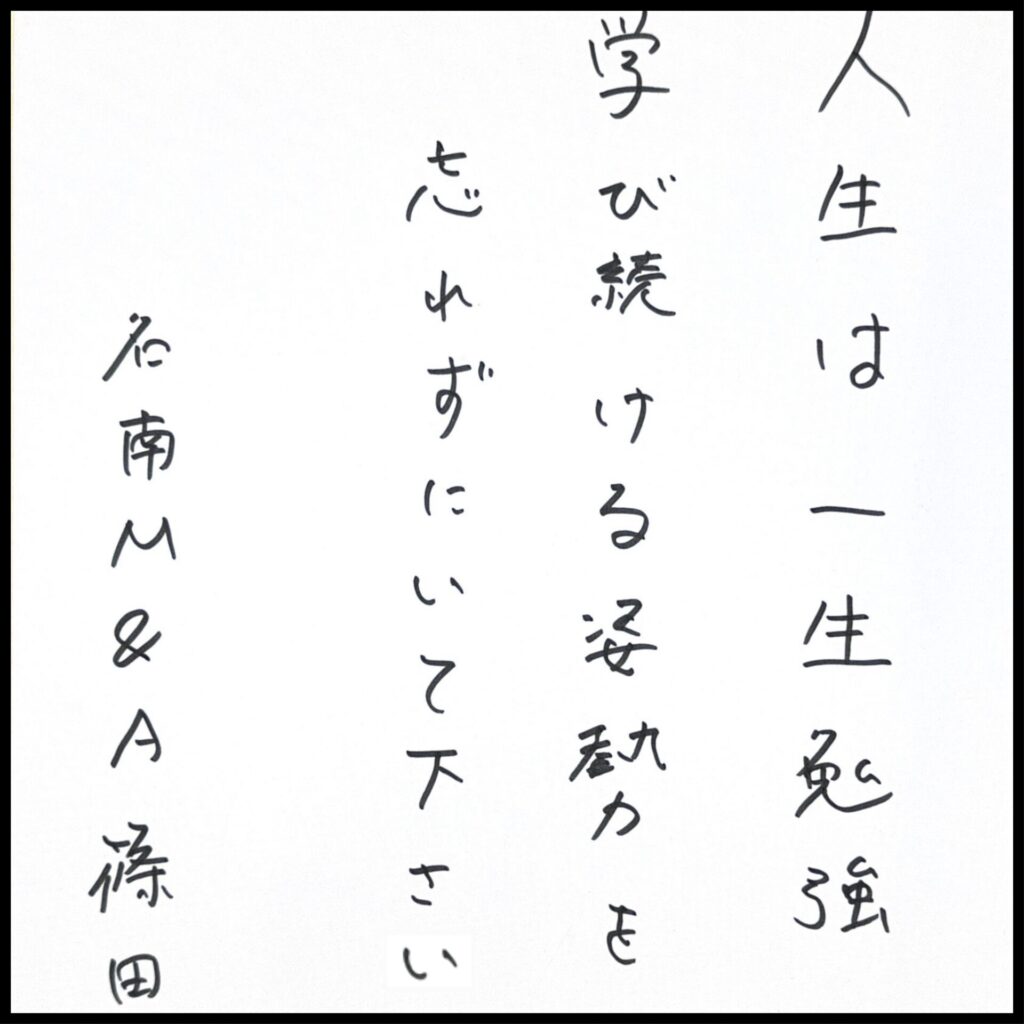 人生は一生勉強
学び続ける姿勢を
忘れずにいて下さい
名南M&A篠田